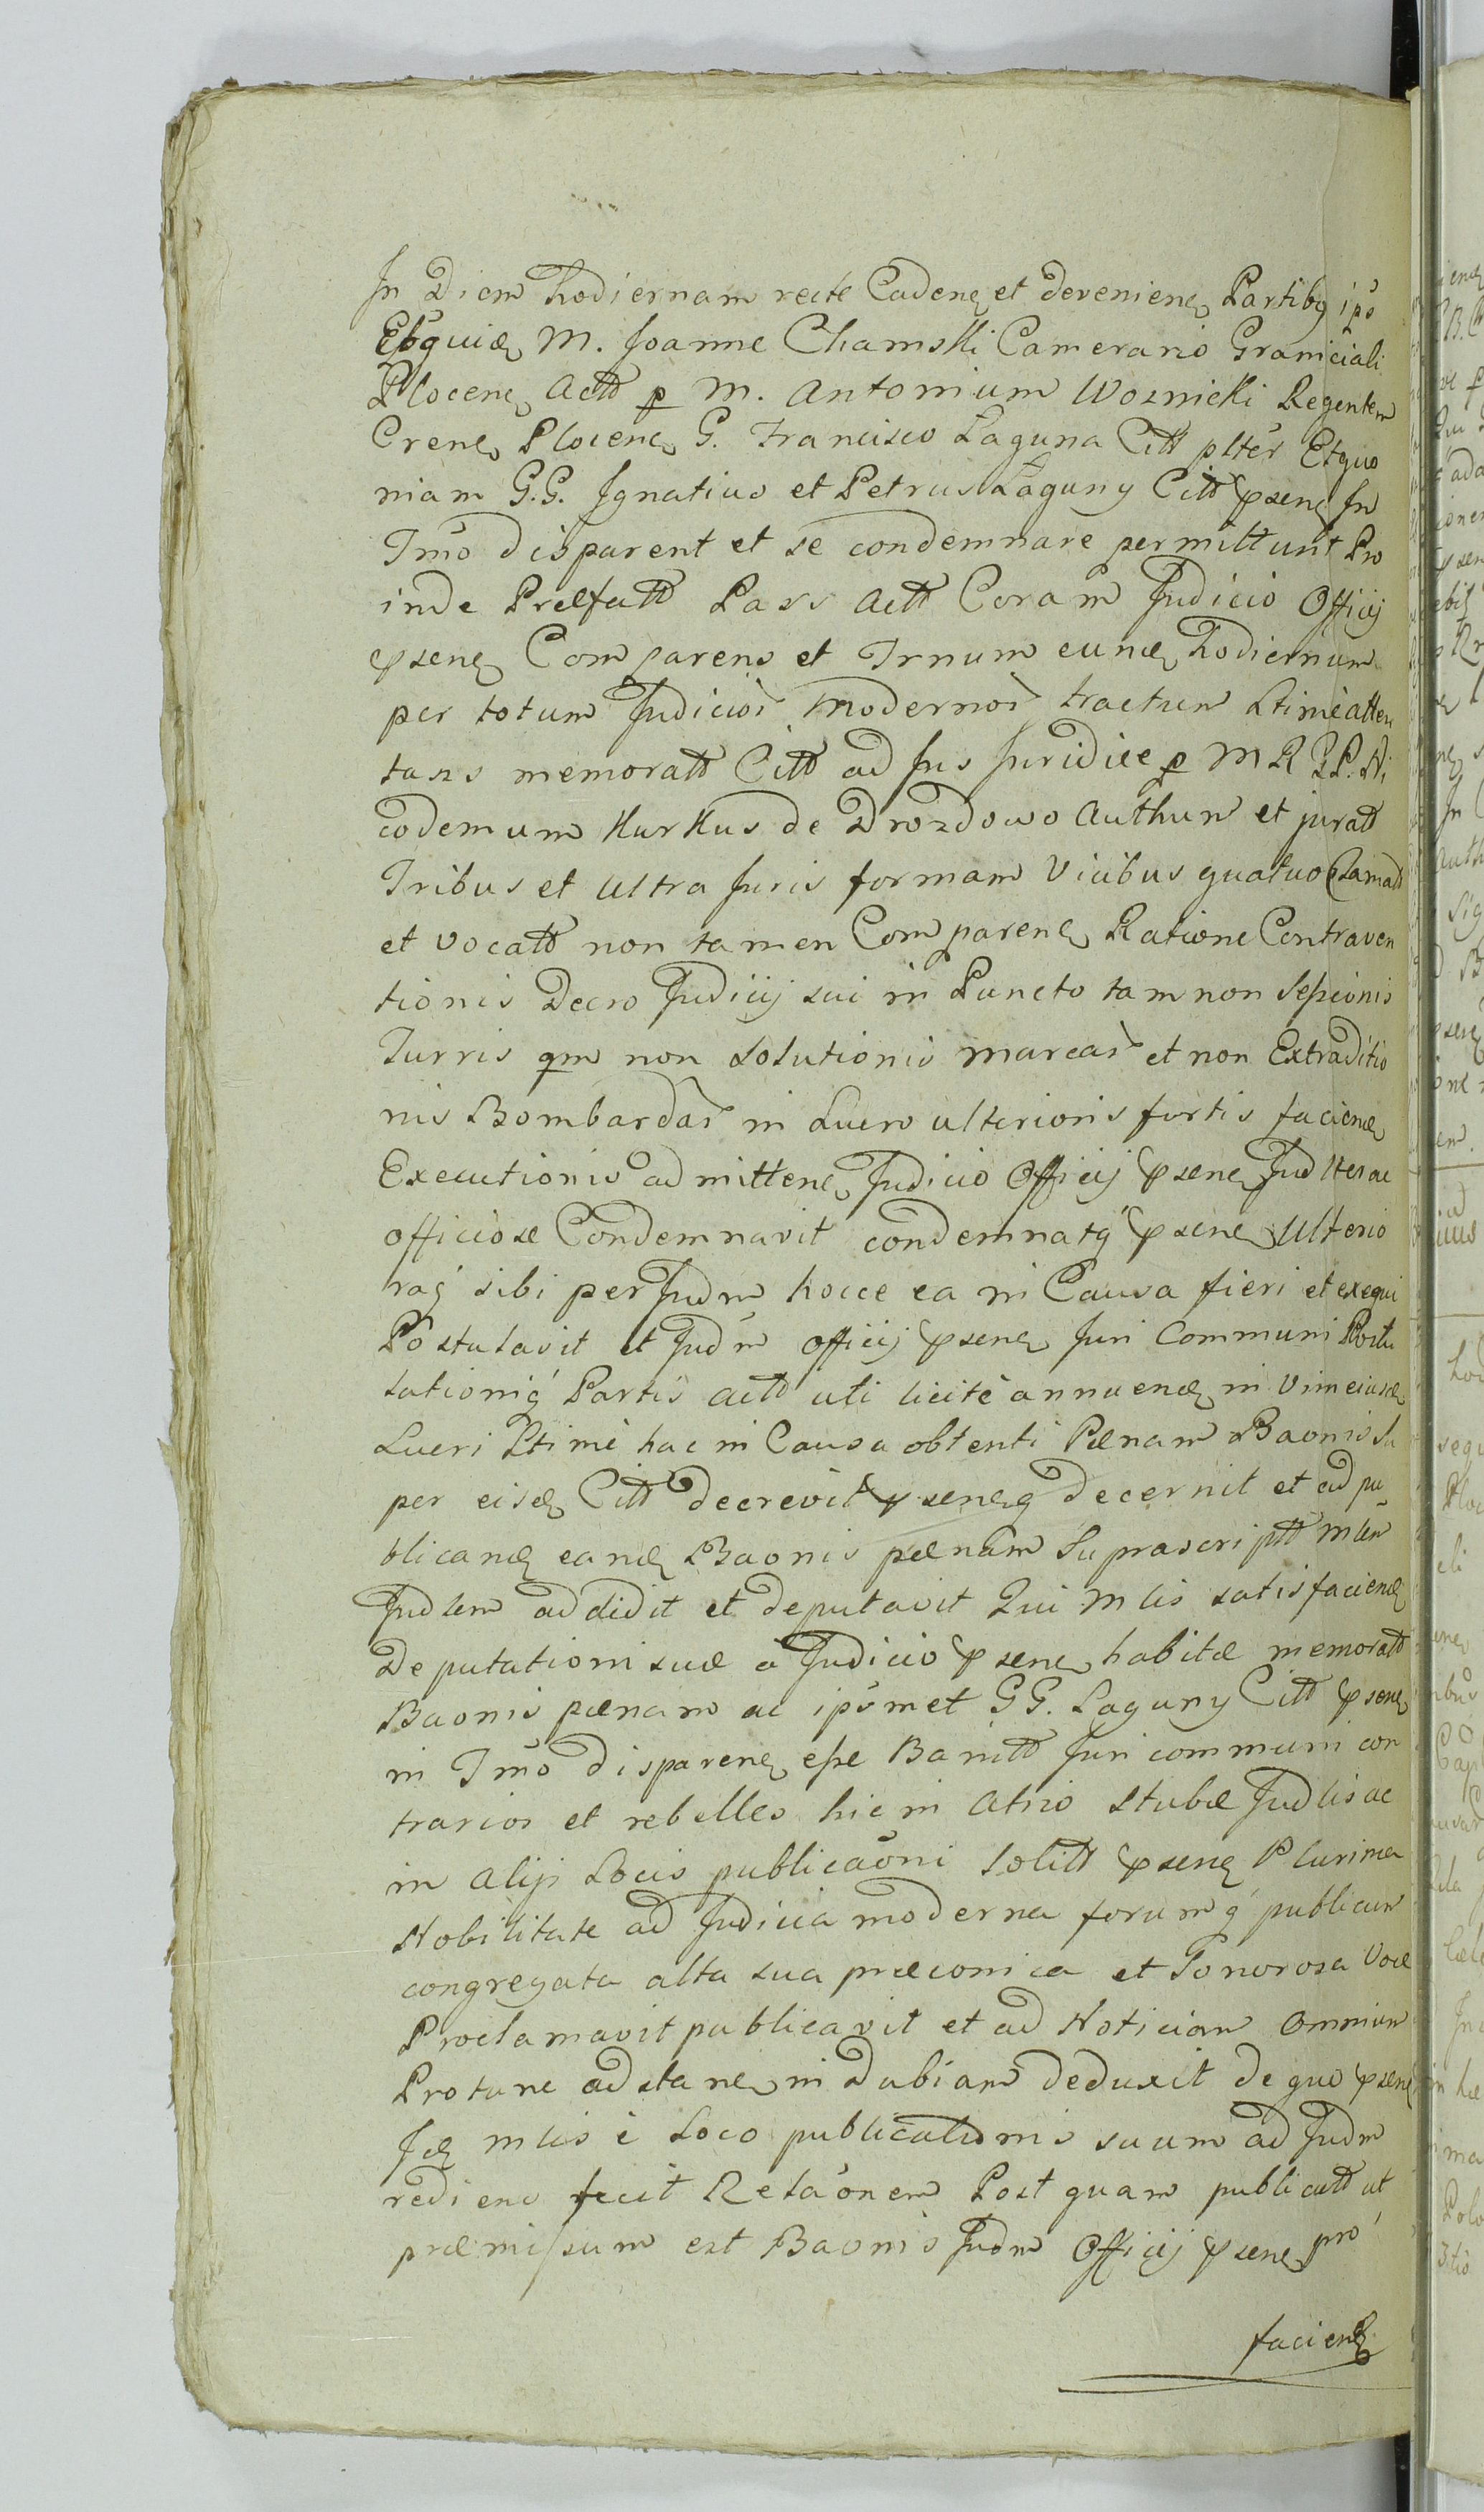 In Diem hodiernam recte Cadenẹ et devenienẹ Partibꝫ ipo
M. Joanne Chamski Camerario Graniciali
Plocenẹ Actt p M. Antonium Woznicki Regentem
Crenẹ Plocenẹ G. Francisco Laguna Citt plter Et quo
niam G.G. Ignatius et Petrus Laguny Citt psenẹ In
Tmo disparent et se condemnare permittunt Pro
inde Præfatt Pars Actt Coram Judicio Officij
psenẹ Comparens et Trnum eundẹ hodiernum
per totum Judicior modernor tractum Ltime atten
tans memoratt Citt ad Jus Juridice p M R GP. Ni
codemum Kurkus de Drozdowo Authun et juratt
Tribus et ultra Juris formam Vicibus quatuor Clamatt
et vocatt non tamen Comparenẹ Ratione Contraven
tionis Decro Judicij sui in Puncto tam non Sessionis
Turris qm non Solutionis marcar et non Extraditio
nis Bombardar in Lucro ulterioris fortis faciendẹ
Executionis admittenẹ Judicio Officij psenẹ Judlter ac
officiose Condemnavit condemnatq psenẹ Ulterio
raq sibi per Judm hocce ea in Causa fieri et exequi
Postulavit et Judm officij psenẹ Juri Communi Postu
lationiq Partis actt uti licitè annuendẹ in Vim eiusdẹ
Lucri Ltimè hac in Causa obtenti Pænam Baonis Su
per eisdẹ Citt decrevit psenẹq decernit et ad pu
blicandẹ eandẹ Baonis pænam Suprascriptt Mlem
Judlem addidit et deputavit Qui Mlis satisfaciendẹ
Deputationi suæ a Judicio psenẹ habitæ memoratt
Baonis pænam ac ipsmet GG. Laguny Citt psenẹ
in Tmo disparenẹ esse Banitt Juri communi con
trarios et rebelles hic in Atrio Stubæ Judlis ac
in alijs Locis publicaoni Solitt psenẹ Plurima
Nobilitate ad Judicia moderna forumq publicum
congregata alta sua præconica et Sonorosa Voce
Proclamavit publicavit et ad Noticiam omnium
Protunc adstanẹ indubiam deduxit de quo psenẹ
Idẹ Mlis è Loco publicationis suum ad Judm
rediens fecit Relaonem Post quam publicatt ut
præmissum est Baonis Judm Officij psenẹ pro
faciendẹ